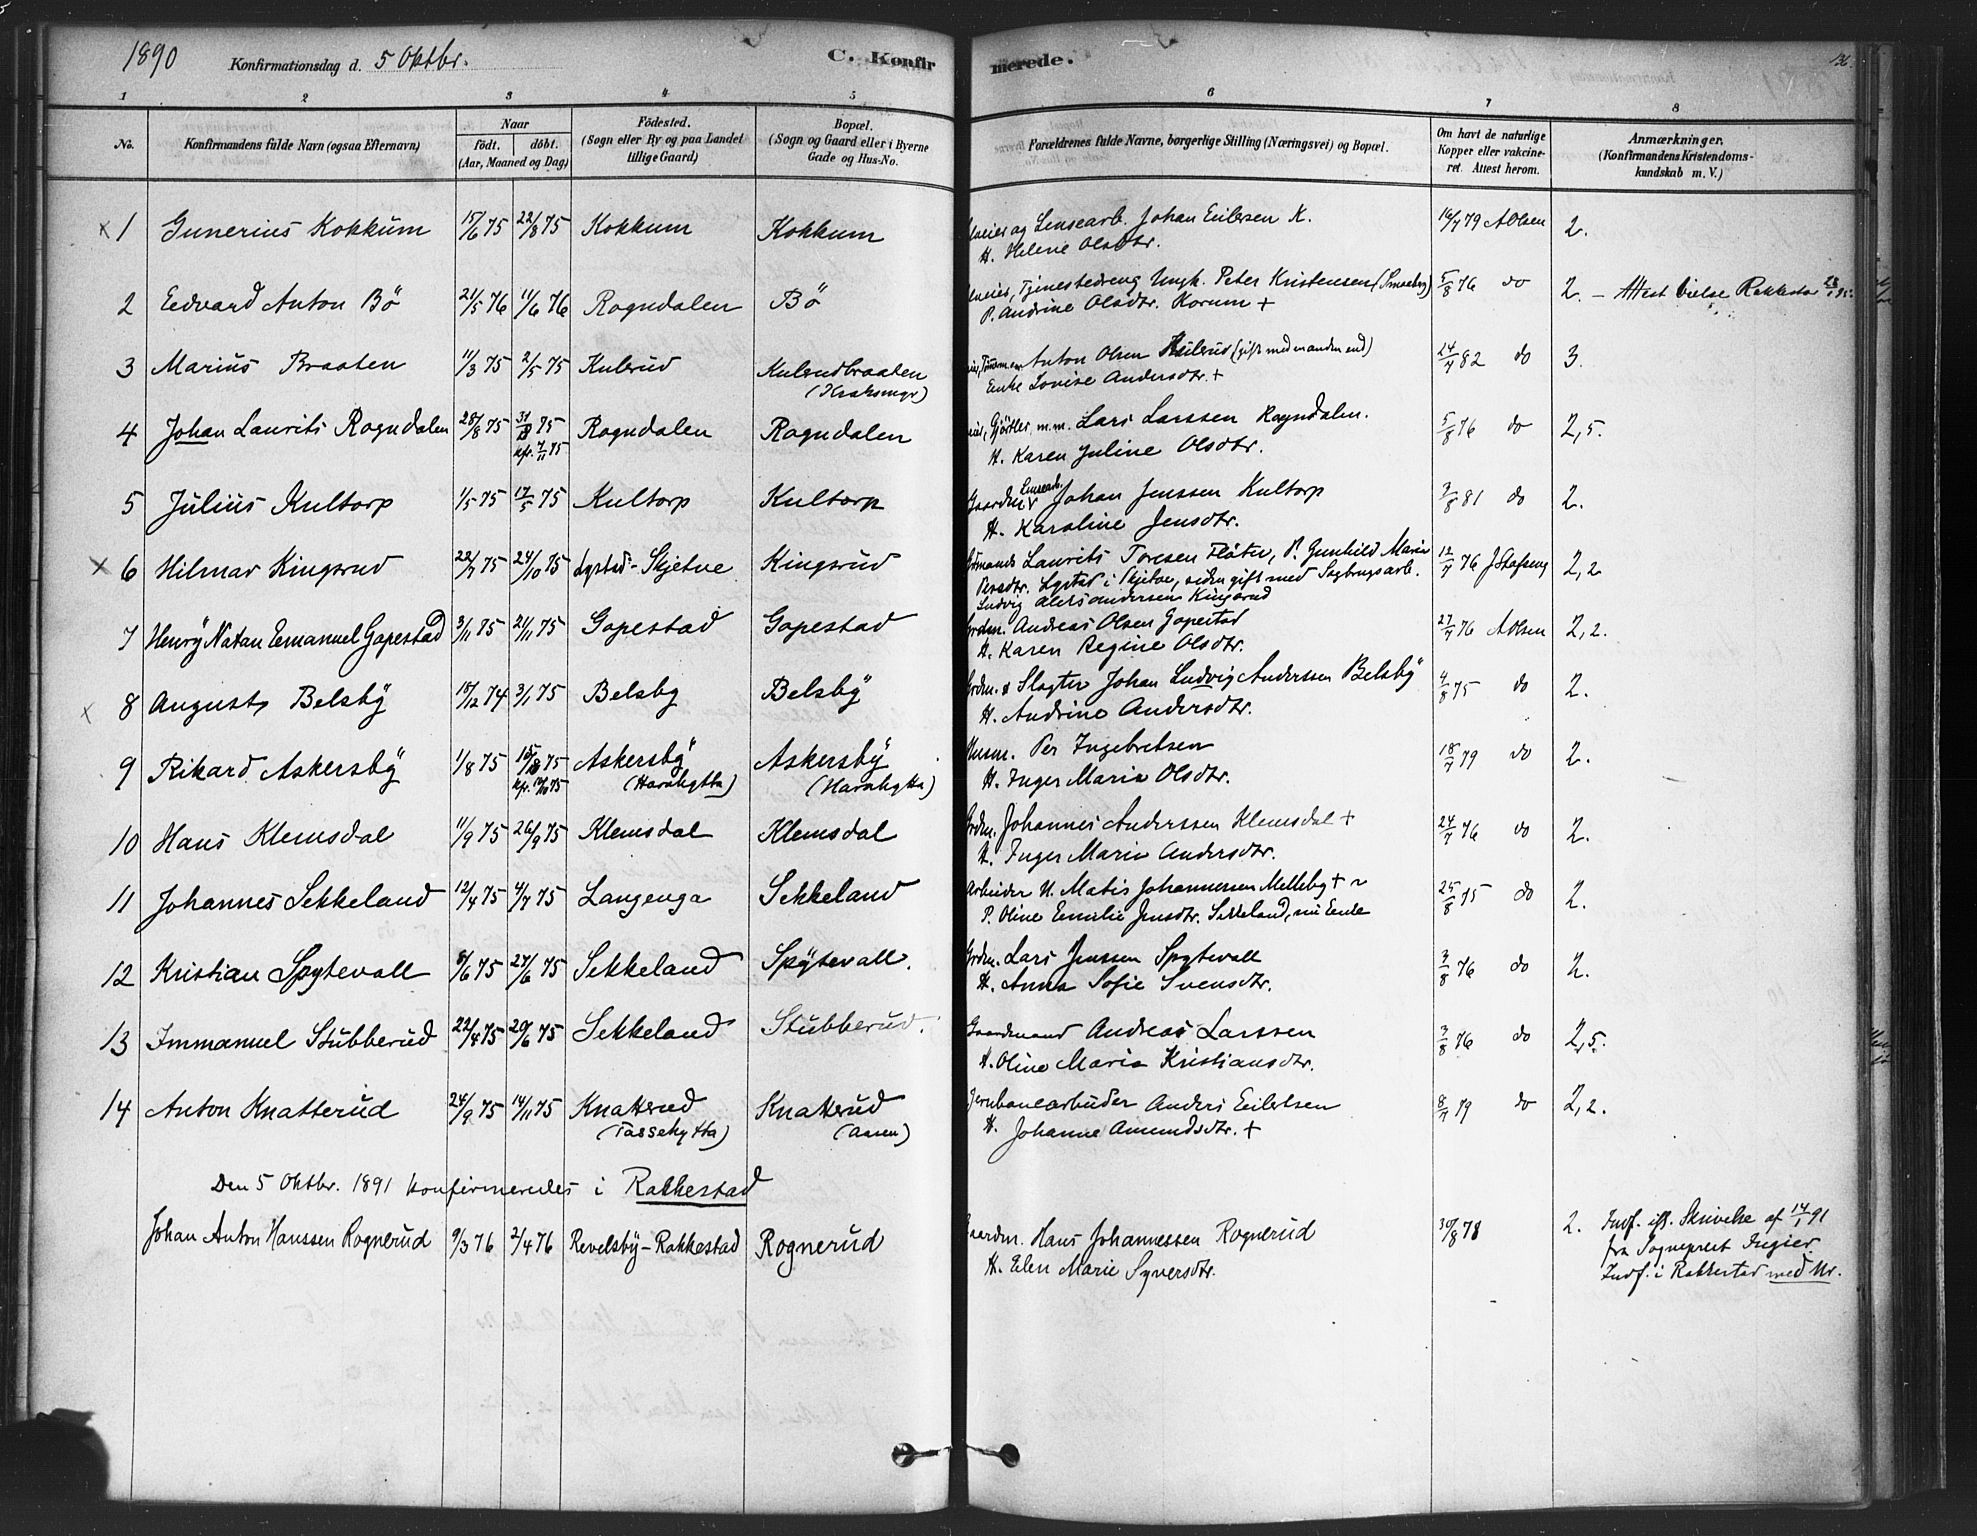 1890 Konfirmationsdag d. 5 Oktbr. C. Konfirmerede.
1 2 3 4 5 6 7 8
No. Konfirmandens fulde Navn (ogsaa Efternavn) Naar födt. döbt. (Aar, Maaned og Dag) Födested. (Sogn eller By og paa Landet tillige Gaard) Bopæl. (Sogn og Gaard eller i Byerne Gade og Hus-No. Forældrenes fulde Navne, borgerlige Stilling (Næringsvei) og Bopæl. Om havt de naturlige Kopper eller vakcineret. Attest herom. Anmærkninger. (Konfirmandens Kristendomskundskab m. V.)
x 1 Gunerius Kokkum 15/6 75 22/8 75 Kokkum Kokkum og Lensearb. Johan Eilersen K. 16/7 79 AOlsen 2.
H. Helene Olsdtr.
2 Edvard Anton Bö 21/5 76 11/6 76 Rogndalen Bö Tjenestedreng Ungk. Peter Kristensen 5/8 76 do 2. – Attest Vielse Rakkestad
P. Andrine Olsdtr. Korum +
3 Marius Braaten 11/3 75 2/5 75 Kulerud Kulerudbraaten Anton Olsen Kulerud (gift med manden end) 24/7 82 do 3.
Enke Lovise Andersdtr. +
4 Johan Laurits Rogndalen 28/8 75 75 Rogndalen Rogndalen m.m. Lars Larssen Rogndalen. 5/8 76 do 2,5.
kfr. 7/11 75 H. Karen Juline Olsdtr.
5 Julius Kultorp 1/5 75 17/5 75 Kultorp Kultorp Johan Jenssen Kultorp 3/8 81 do 2.
H. Karoline Jensdtr.
x 6 Hilmar Kingsrud 22/7 75 24/10 75 Lystad - Skjetve Kingsrud Laurits Toresen Flöter, P. Gunhild Marie 12/7 76 2,2
Persdtr. Lystad i Skjetve, siden gift med Sagbrugsarb.
Ludvig Aleksandersen Kingsrud
7 Henry Natan Emanuel Gopestad 3/11 75 21/11 75 Gopestad Gopestad Grdm. Andreas Olsen Gopestad 27/7 76 AOlsen 2,2.
H. Karen Regine Olsdtr.
x 8 August Belsby 15/12 74 3/1 75 Belsby Belsby Grdm. & Slagter Johan Ludvig Anderssen Belsby 4/8 75 do 2.
H. Andrine Andersdtr.
9 Rikard Askersby 1/8 75 15/8 75 Askersby Askersby Husm. Per Ingebretsen 18/7 79 do 2.
H. Inger Marie Olsdtr.
10 Hans Klemsdal 11/9 75 26/9 75 Klemsdal Klemsdal Grdm. Johannes Anderssen Klemsdal + 24/7 76 do 2.
H. Inger Marie Andersdtr.
11 Johannes Sekkeland 12/4 75 4/7 75 Langenga Sekkeland Arbeider U. Matis Johannessen Melleby + 25/8 75 do 2.
P. Oline Emilie Jensdtr. Sekkeland, nu Enke
12 Kristian Spytevall 8/6 75 27/6 75 Sekkeland Spytevall. Grdm. Lars Jenssen Spytevall 3/8 76 do 2.
H. Anna Sofie Svensdtr.
13 Immanuel Stubberud 22/4 75 20/6 75 Sekkeland Stubberud. Gaardmand Andreas Larssen 3/8 76 do 2,5.
H. Oline Marie Kristiansdtr.
14 Anton Knatterud 24/9 75 14/11 75 Knatterud Knatterud Jernbanearbeider Anders Eilertsen 8/7 79 do 2,2.
(Tassehytta) (Aasen) H. Johanne Amundsdtr. +
Den 5 Oktbr. 1891 konfirmeredes i Rakkestad
Johan Anton Hanssen Rognerud 9/3 76 2/4 76 Revelsby – Rakkestad Rognerud Gaardm. Hans Johannessen Rognerud 30/8 78 2. Indf. ifl. Skrivelse af 14/1 91
H. Elen Marie Syversdtr. fra Sogneprest Ingier.
Indf. i Rakkestad med Nr.